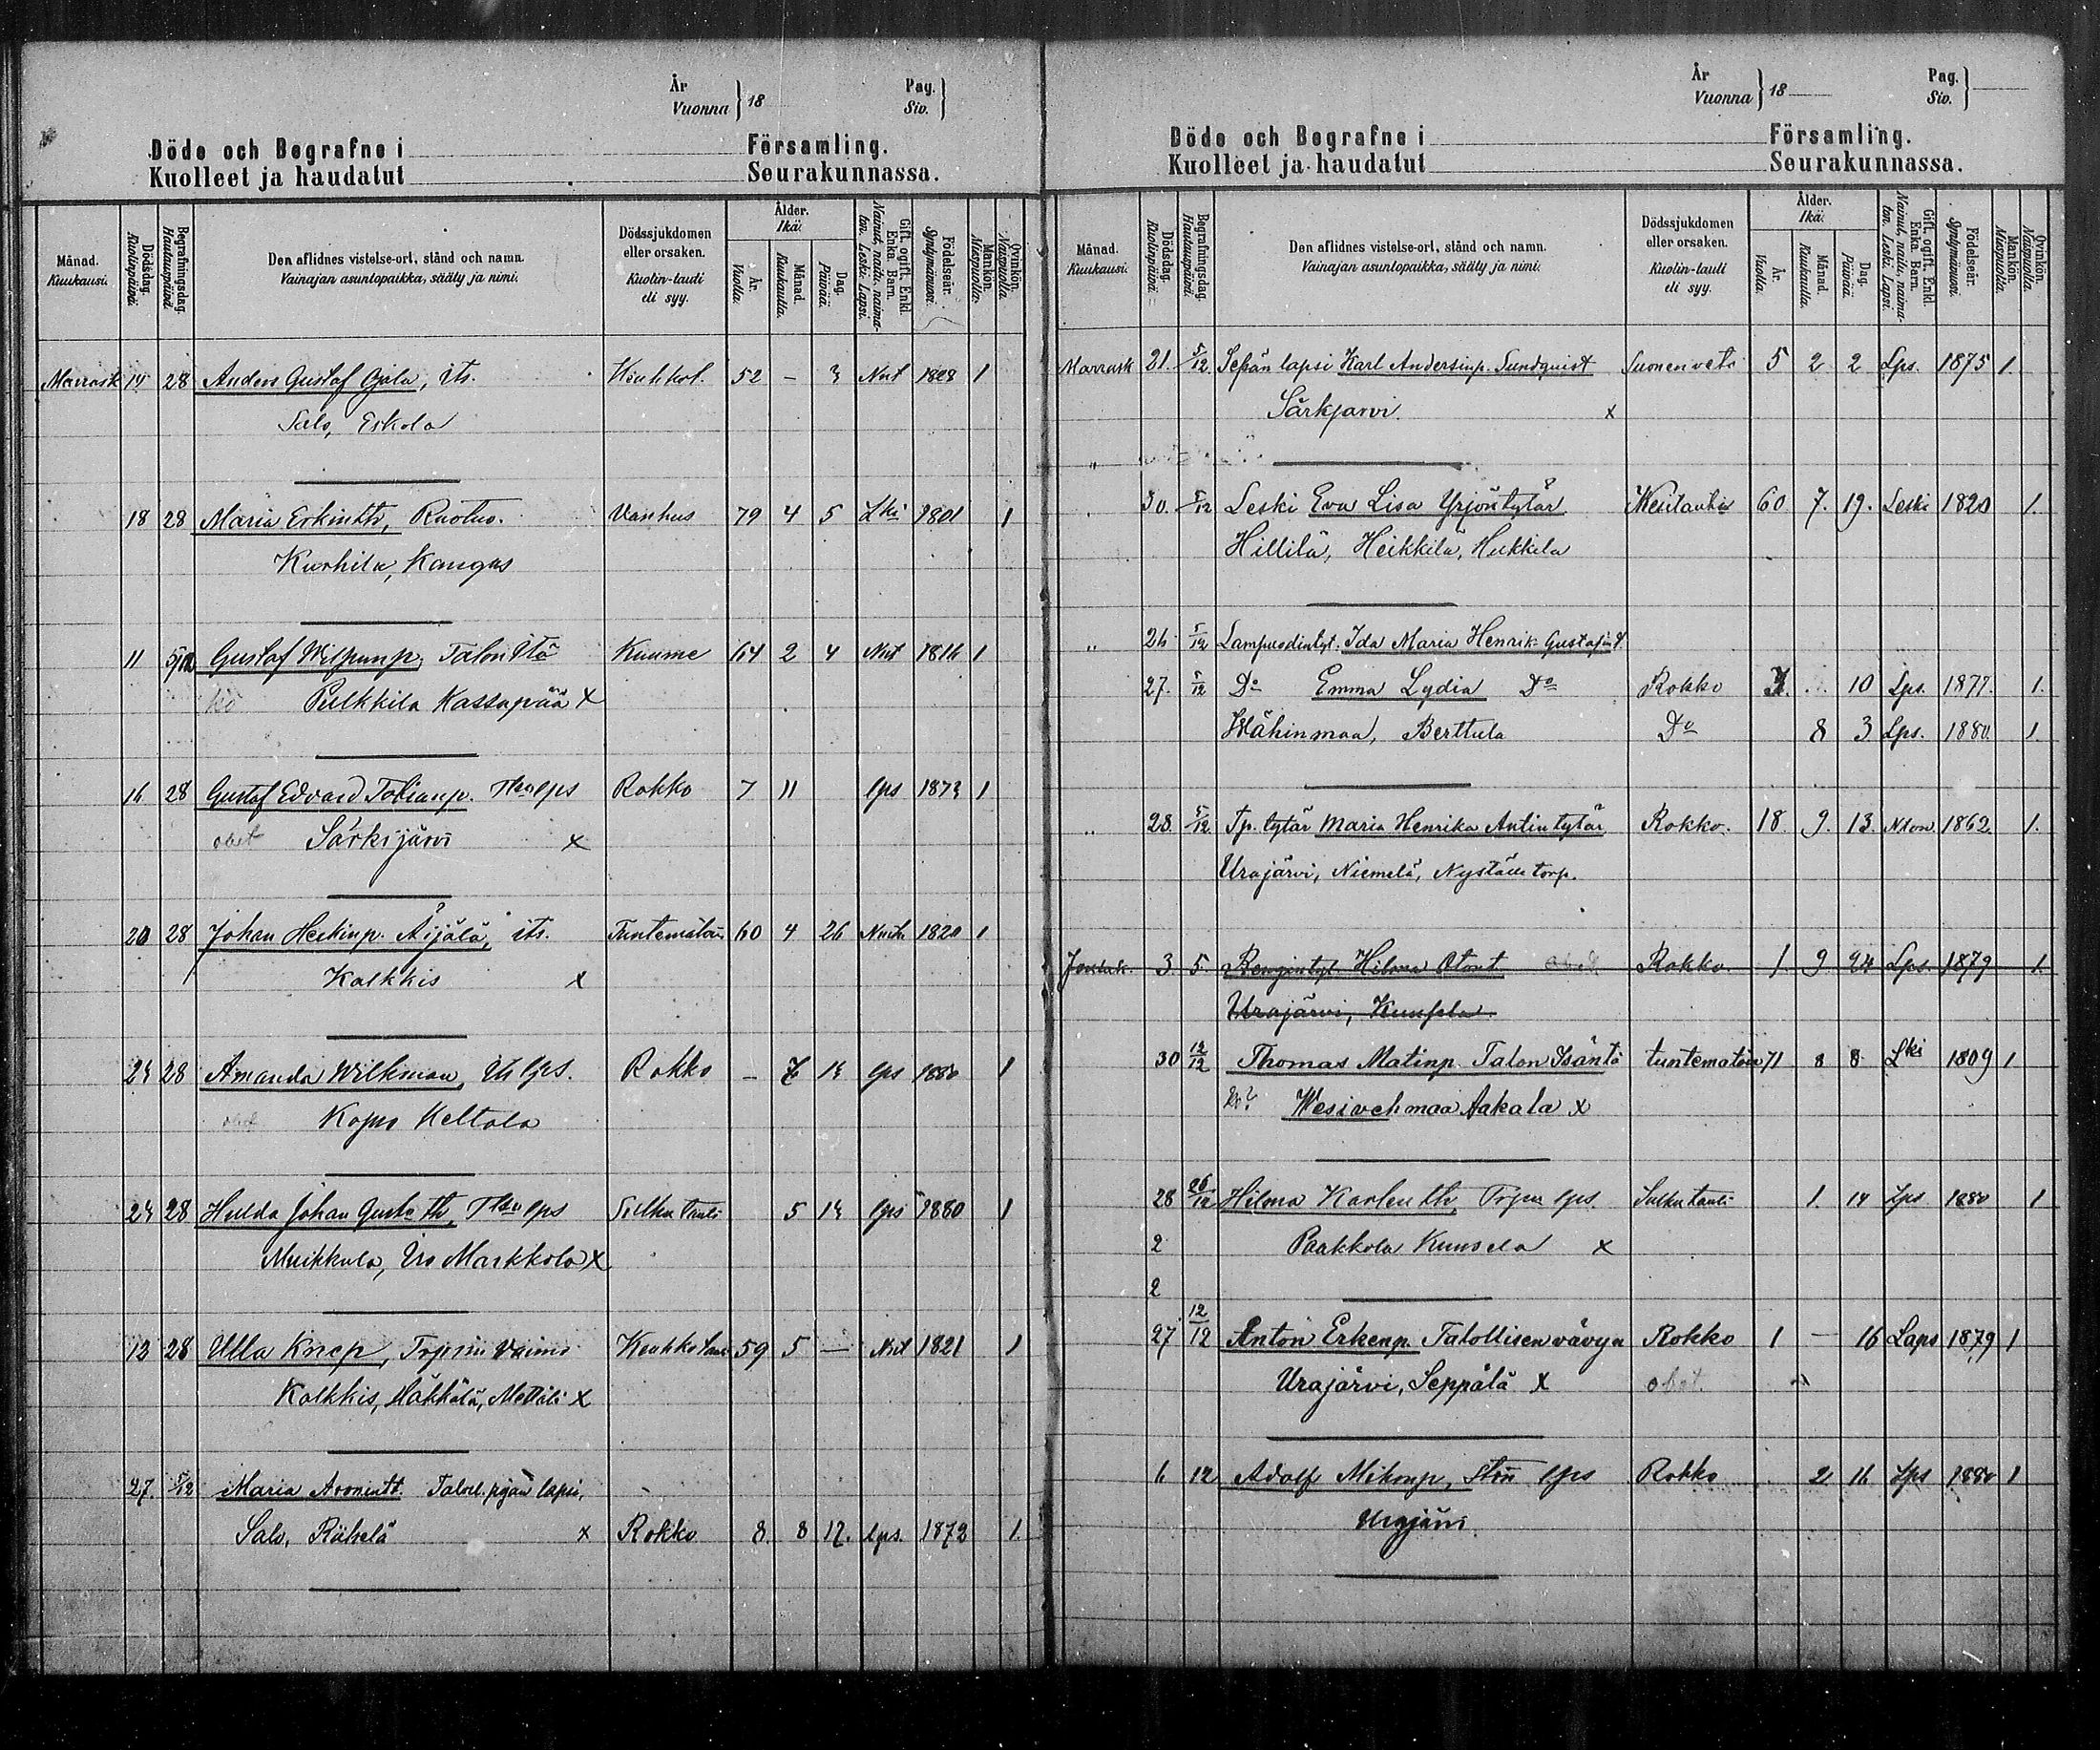 År
Vuonna } 18
Pag.
Siv. }
Döde och Begrafne i Församling.
Kuolleet ja haudatut Seurakunnassa.
Månad. Kuukausi.
Dödsdag. Kuolinpäivä.
Begrafningsdag. Hautauspäivä.
Den aflidnes vistelse-ort, stånd och namn.
Vainajan asuntopaikka, sääty ja nimi.
Dödssjukdomen eller orsaken.
Kuolin-tauti eli syy.
Ålder. Ikä.
År. Vuotta.
Månad. Kuukautta.
Dag. Päivää.
Gift, ogift, Enkl. Enka. Barn. Nainut, naitu, naimaton. Leski. Lapsi.
Födelseår. Syntymävuosi.
Mankön. Miespuolta.
Qvinkön. Naispuolta.
Marrask 14 28 Anders Gustaf Gjäla, its. 52 – 3 Nut 1828 1
Salo, Eskola
18 28 Maria Erkintr, Ruotus. Vanhus 79 4 5 Lki 1801 1
Kurhila, Kangas
11 5/12 Gustaf Wilpunp, Talon Itä Kuume 64 2 4 Nut 1816 1
Pulkkila Kassapää x
16 28 Gustaf Edvard Tobianp. Rokko 7 11 lps 1873 1
obet Särkijärvi x
20 28 Johan Heikinp. Äijälä, its. Tuntematoin 60 4 26 1820 1
Kalkkis x
23 28 Amanda Wilkman, Its lps. Rokko – 7 13 lps 1880 1
Kopso Keltola
23 28 Hulda Johan Gust. tr, lps 5 13 lps 1880 1
Muikkula, Iso Markkola x
13 28 Ulla Knep, vaimo 59 5 – Nut 1821 1
Kalkkis, Häkkälä, Mettälä x
27. 5/12 Maria Aronintt. lapsi,
Salo, x Rokko 8. 8 12. lps. 1872 1.
År
Vuonna } 18
Pag.
Siv. }
Döde och Begrafne i Församling.
Kuolleet ja haudatut Seurakunnassa.
Månad. Kuukausi.
Dödsdag. Kuolinpäivä.
Begrafningsdag. Hautauspäivä.
Den aflidnes vistelse-ort, stånd och namn.
Vainajan asuntopaikka, sääty ja nimi.
Dödssjukdomen eller orsaken.
Kuolin-tauti eli syy.
Ålder. Ikä.
År. Vuotta.
Månad. Kuukautta.
Dag. Päivää.
Gift, ogift, Enkl. Enka. Barn. Nainut, naitu, naimaton. Leski. Lapsi.
Födelseår. Syntymävuosi.
Mankön. Miespuolta.
Qvinkön. Naispuolta.
Marrask 21. 5/12 Sepän lapsi Karl Andersinp. Sundquist Suonenveto 5 2 2 Lps. 1875 1.
Särkjarvi. x
"
30. 5/12 Leski Eva Lisa Yrjöntytär 60 7. 19. Leski 1820 1.
Hillilä, Heikkilä, Hukkila
" 26 5/12 Ida Maria Henrik Gustafint.
27. 5/12 Do Emma Lydia Do Rokko 3. 10 Lps. 1877. 1.
Wähinmaa, Berttula Do 8 3 Lps. 1880. 1.
" 28. 5/12 Tp. tytär Maria Henrika Antintytär Rokko. 18. 9. 13. Nton 1862 1.
Urajärvi, Niemelä, Nystäde torp.
Jouluk. 3. 5. Rengintyt. Hilma Otont. Rokko. 1. 9 24 Lps. 1879 1.
Urajärvi, Kuusela.
30 12/12 Thomas Matinp. Talon Isäntä tuntematoin 71 8 8 Lki 1809 1
Wesivehmaa Aakala x
28 26/12 Hilma Karlentr, lps. Sulku tauti 1. 14 Lps 1880 1
2 Paakkola Kuusela x
2
27 12/12 Anton Erkenp. Talollisen vävyn Rokko 1 – 16 Laps 1879 1
Urajärvi, Seppälä x obet.
6 12 Adolf Mikonp, lps Rokko 2 16 Lps 1880 1
Urajärvi